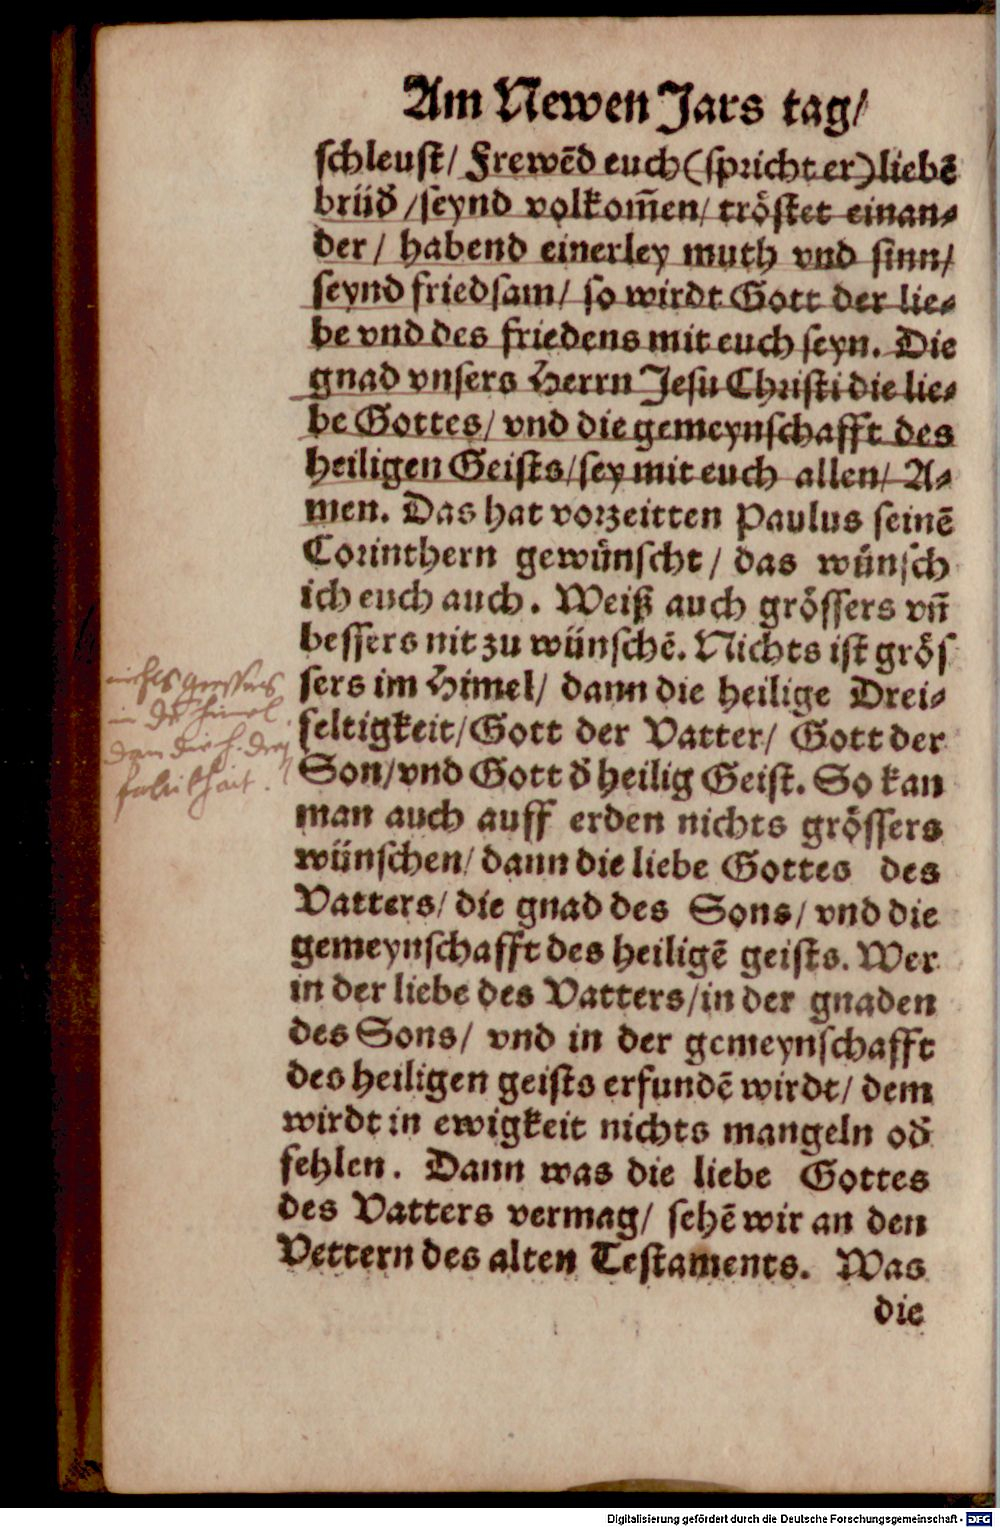 Am Newen Jars tag/
schleust/ Frewēd euch (spricht er) liebē
brüd̕ /seynd volkom̄en/ tröstet einan⸗
der/ habend einerley muth vnd sinn/
seynd friedsam/ so wirdt Gott der lie⸗
be vnd des friedens mit euch seyn. Die
gnad vnsers Herrn Jesu Christi die lie⸗
be Gottes/ vnd die gemeynschafft des
heiligen Geists/sey mit euch allen/ A⸗
men. Das hat vorzeitten Paulus seinē
Corinthern gewünscht/ das wünsch
ich euch auch. Weiß auch grössers vn̄
bessers nit zu wünschē. Nichts ist grös
sers im Himel/ dann die heilige Drei⸗
feltigkeit/Gott der Vatter/ Gott der
Son/vnd Gott d̕ heilig Geist. So kan
man auch auff erden nichts grössers
wünschen/ dann die liebe Gottes des
Vatters/ die gnad des Sons/ vnd die
gemeynschafft des heiligē geists. Wer
in der liebe des Vatters/in der gnaden
des Sons/ vnd in der gemeynschafft
des heiligen geists erfundē wirdt/ dem
wirdt in ewigkeit nichts mangeln od̕
fehlen. Dann was die liebe Gottes
des Vatters vermag/ sehē wir an den
Vettern des alten Testaments. Was
die
nichts grossers
in himel
dan die h. drey
faltikhait.
Digitalisierung gefördert durch die Deutsche Forschungsgemeinschaft - DFG